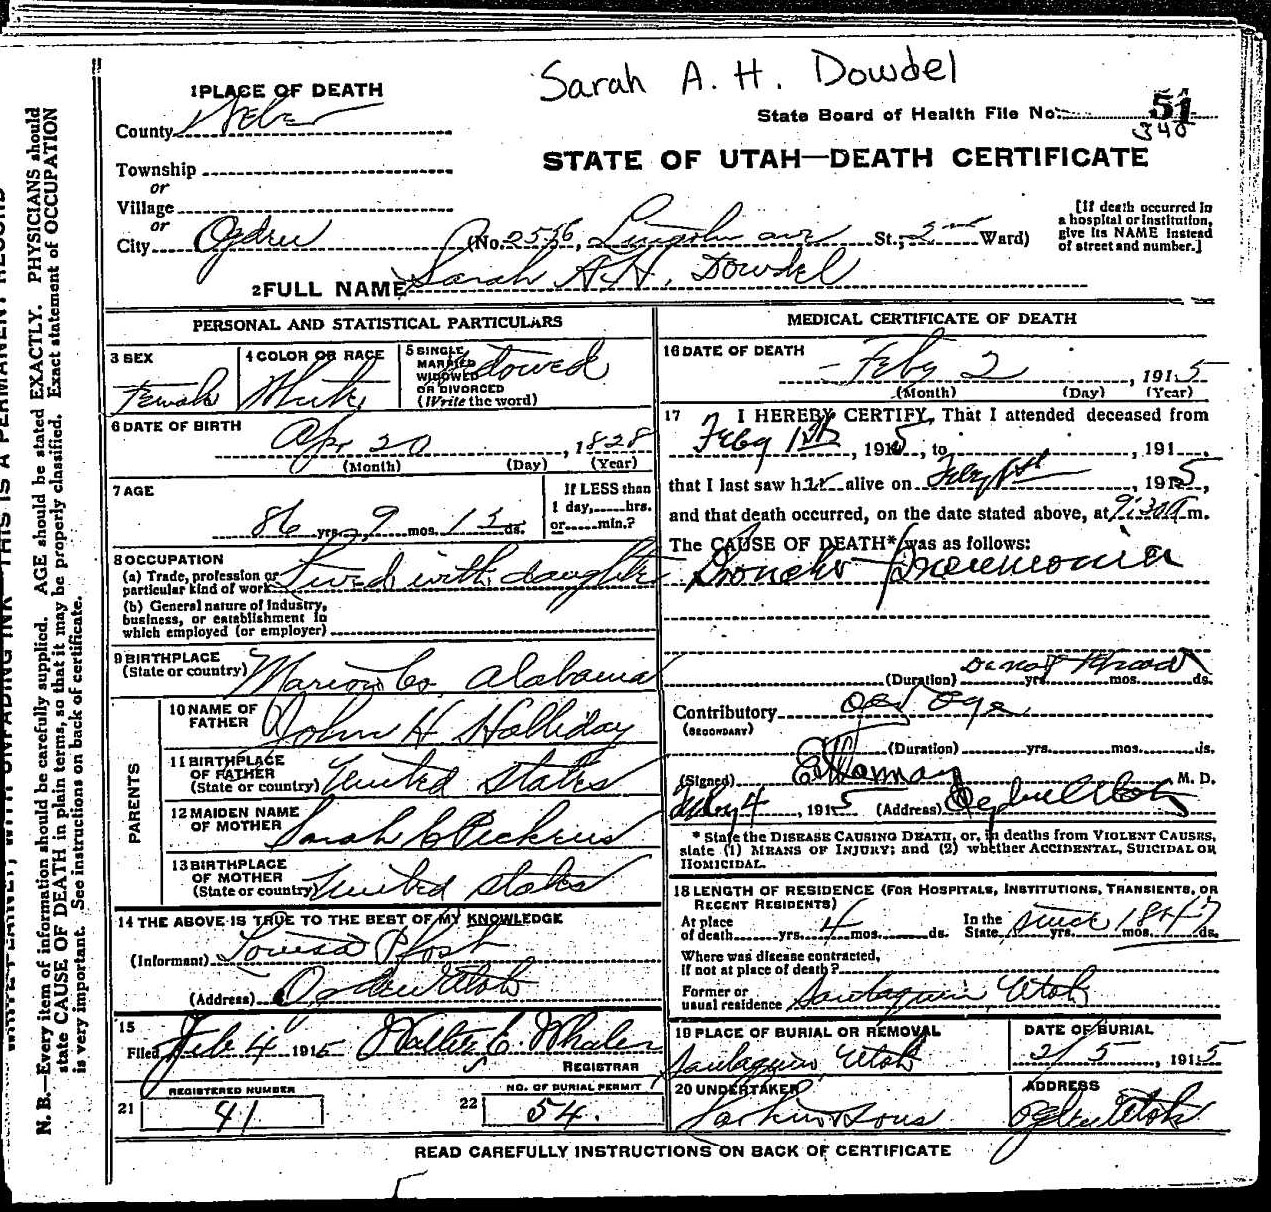 Sarah A. H. Dowdel
1 PLACE OF DEATH
State Board of Health File No. 51
340
County Weber
STATE OF UTAH—DEATH CERTIFICATE
Township
or
Village
or
City Ogden (No. 2556, Lincoln ave St.; 2nd Ward)
[If death occurred in
a hospital or institution,
give its NAME instead
of street and number.]
2 FULL NAME Sarah A. H. Dowdel
PERSONAL AND STATISTICAL PARTICULARS
3 SEX
Female
4 COLOR OR RACE
White
5 SINGLE
MARRIED
WIDOWED
OR DIVORCED
(Write the word)
Widowed
6 DATE OF BIRTH
Apr 20, 1828
(Month) (Day) (Year)
7 AGE
86 yrs. 9 mos. 13 ds.
If LESS than
1 day, hrs.
or min.?
8 OCCUPATION
(a) Trade, profession or
particular kind of work Lived with daughter
(b) General nature of industry,
business, or establishment in
which employed (or employer)
9 BIRTHPLACE
(State or country) Marion Co. Alabama
PARENTS
10 NAME OF
FATHER John H Halliday
11 BIRTHPLACE
OF FATHER
(State or country) United States
12 MAIDEN NAME
OF MOTHER Sarah C Pickens
13 BIRTHPLACE
OF MOTHER
(State or country) United States
14 THE ABOVE IS TRUE TO THE BEST OF MY KNOWLEDGE
(Informant) Louisa Pfost
(Address) Ogden Utah
15
Filed Feb 4 1915 Walter E. Whalen
REGISTRAR
REGISTERED NUMBER
21 41
NO. OF BURIAL PERMIT
22 54.
MEDICAL CERTIFICATE OF DEATH
16 DATE OF DEATH
Feby 2, 1915
(Month) (Day) (Year)
17 I HEREBY CERTIFY, That I attended deceased from
Feby 1st, 1915, to , 191
that I last saw her alive on Feby 1st, 1915,
and that death occurred, on the date stated above, at 9:30 a m.
The CAUSE OF DEATH* was as follows:
Broncho Pneumonia
(Duration) yrs. mos. ds.
Contributory old age
(SECONDARY)
(Duration) yrs. mos. ds.
(Signed) M. D.
Feby 4, 1915 (Address) Ogden Utah
* State the DISEASE CAUSING DEATH, or, in deaths from VIOLENT CAUSES,
state (1) MEANS OF INJURY; and (2) whether ACCIDENTAL, SUICIDAL OR
HOMICIDAL.
18 LENGTH OF RESIDENCE (FOR HOSPITALS, INSTITUTIONS, TRANSIENTS, OR
RECENT RESIDENTS)
At place
of death yrs. 4 mos. ds.
In the
State since 1847 yrs. mos. ds.
Where was disease contracted,
if not at place of death?
Former or
usual residence Santaquin, Utah
19 PLACE OF BURIAL OR REMOVAL
Santaquin, Utah
DATE OF BURIAL
2/5, 1915
20 UNDERTAKER
Larkin & Sons
ADDRESS
Ogden Utah
READ CAREFULLY INSTRUCTIONS ON BACK OF CERTIFICATE
N. B.—Every item of information should be carefully supplied. AGE should be stated EXACTLY. PHYSICIANS should
state CAUSE OF DEATH in plain terms, so that it may be properly classified. Exact statement of OCCUPATION
is very important. See instructions on back of certificate.